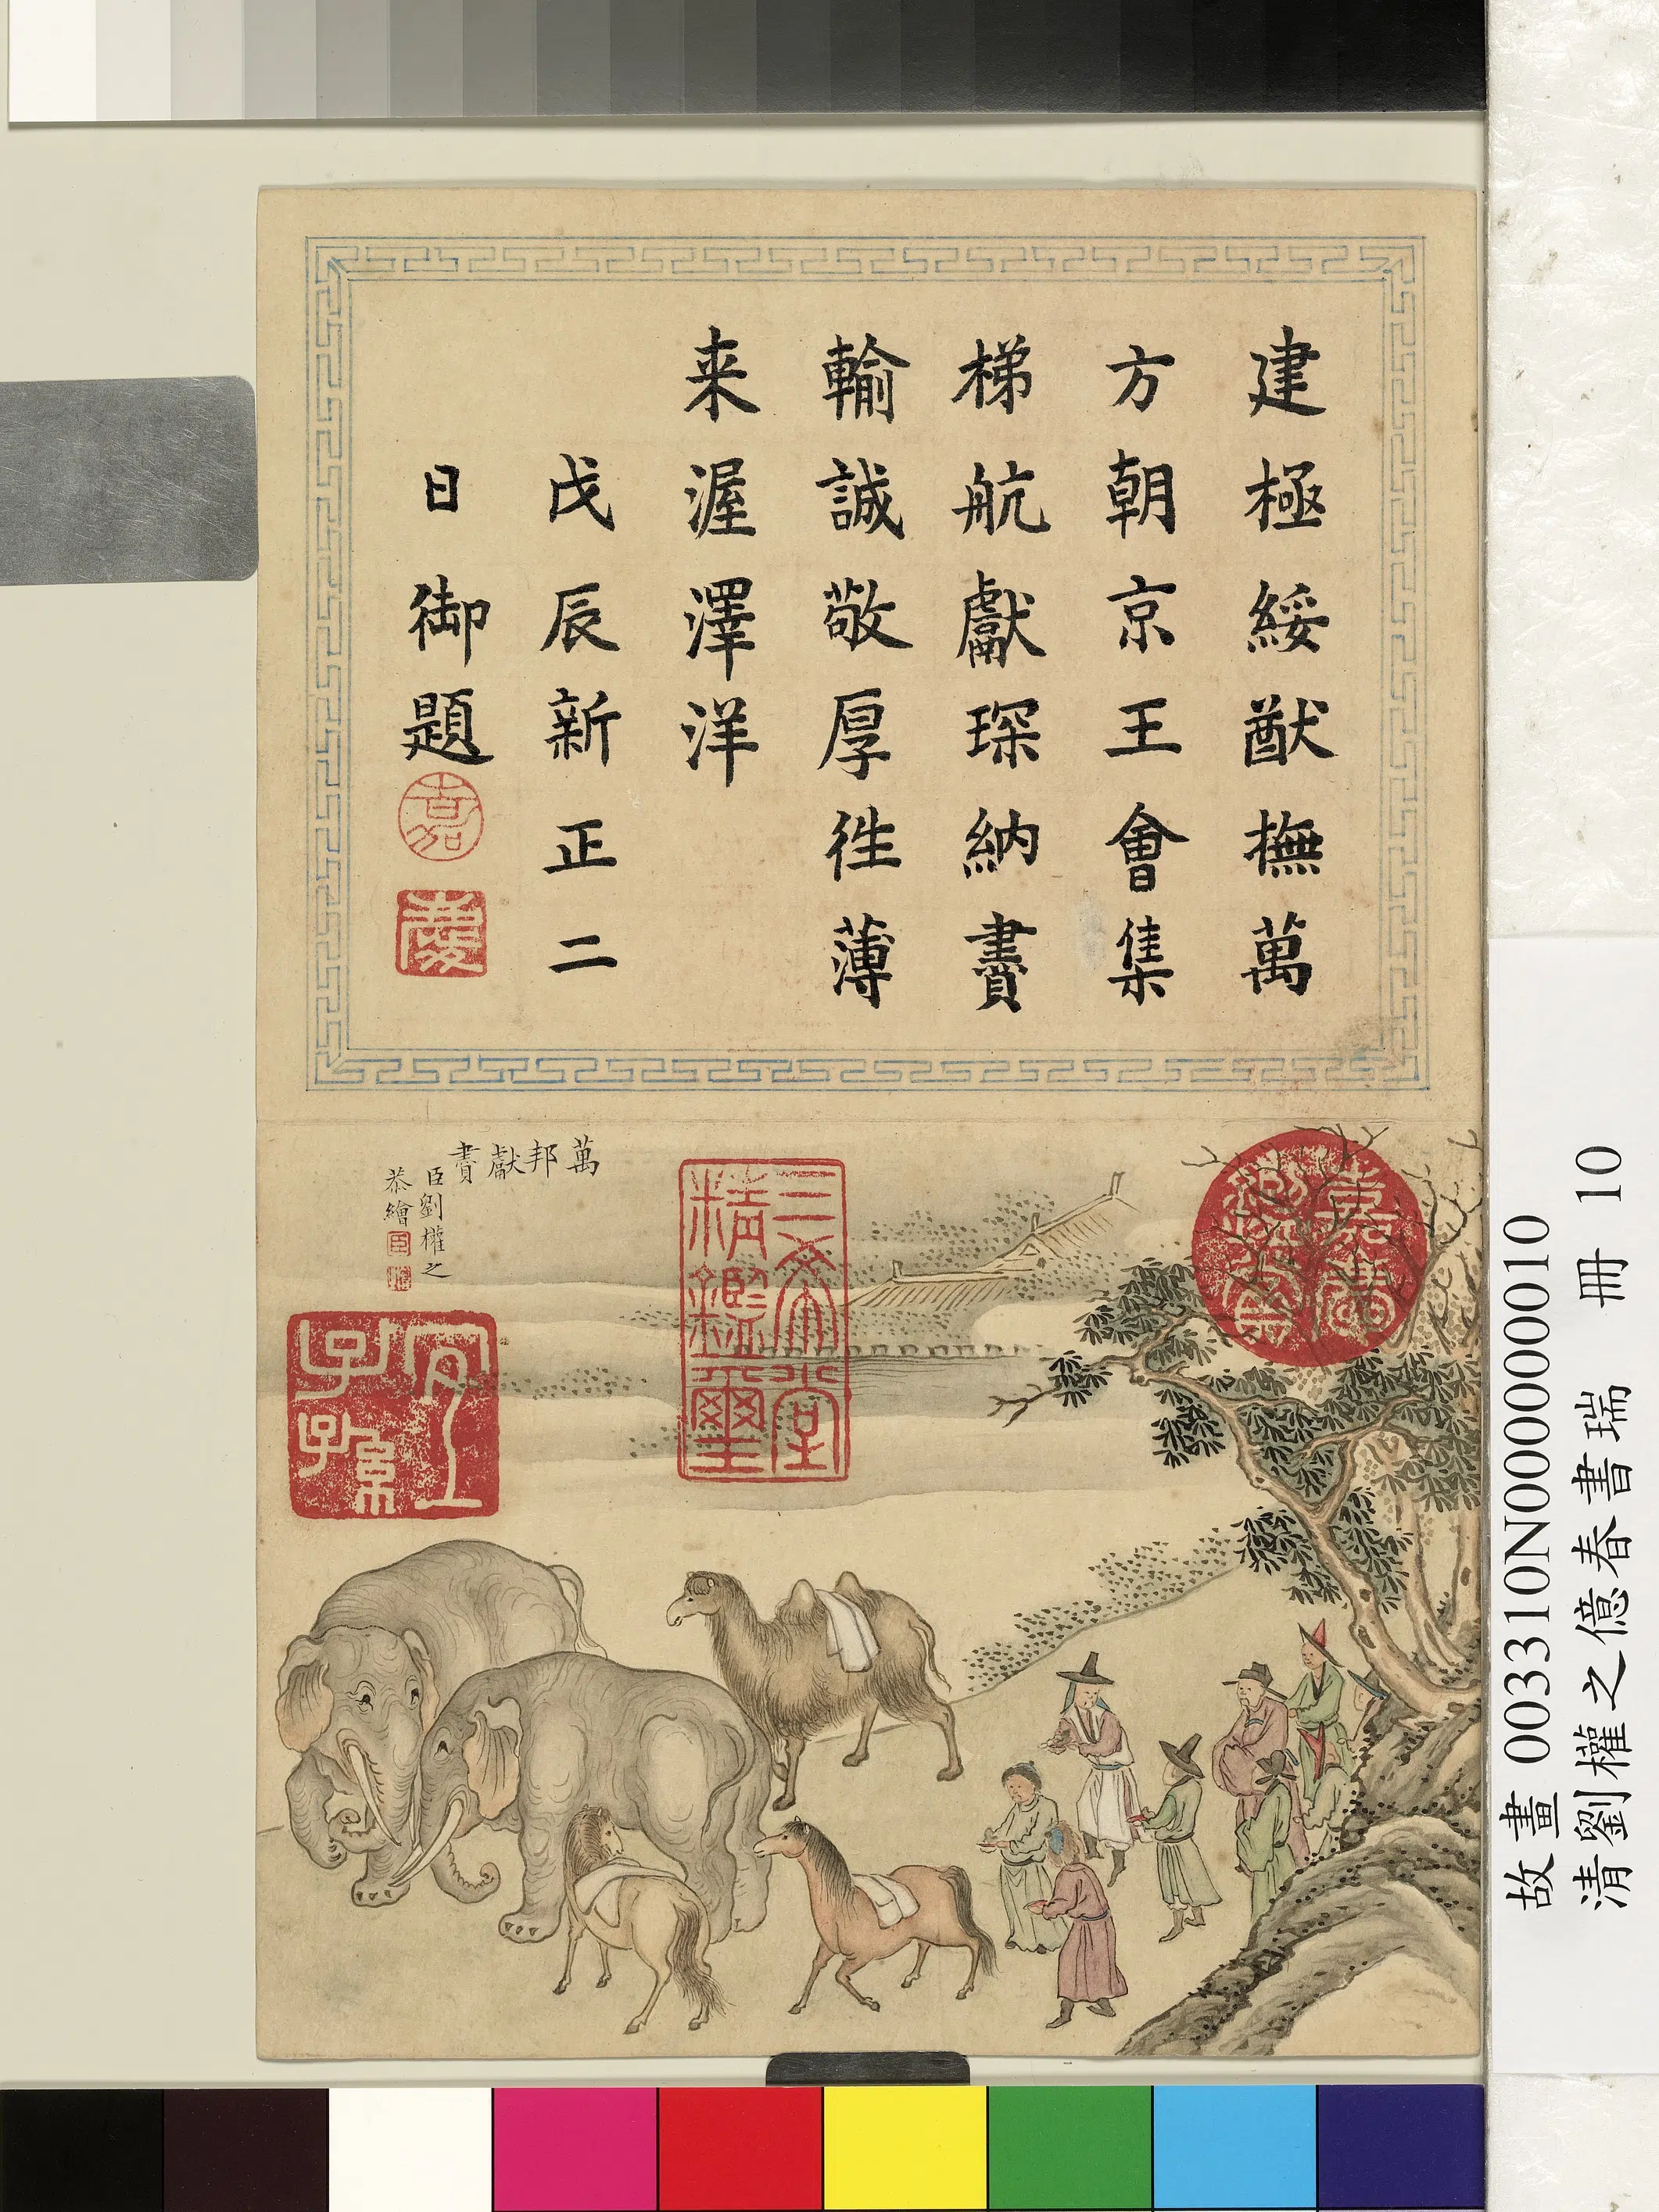 建極綏猷撫萬
方朝京王會集
梯航獻琛納賮
輸誠敬厚徃薄
来渥澤洋
戊辰新正二
日御題
嘉
慶
萬邦獻賮
臣劉權之
恭繪
臣
權
三希堂
精鑑璽
宜
子孫
嘉慶鑑賞
故畫 003310N000000010
清劉權之億春書瑞 冊 10